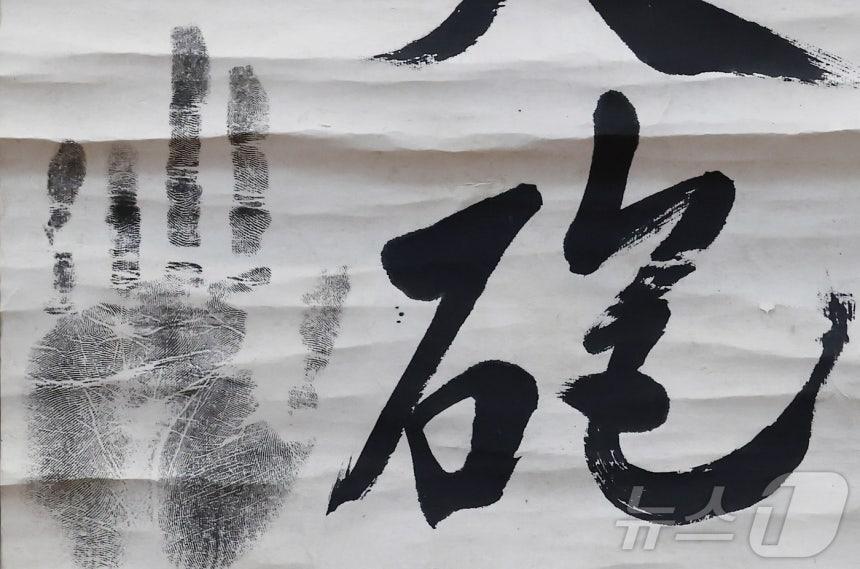 砲
뉴스1